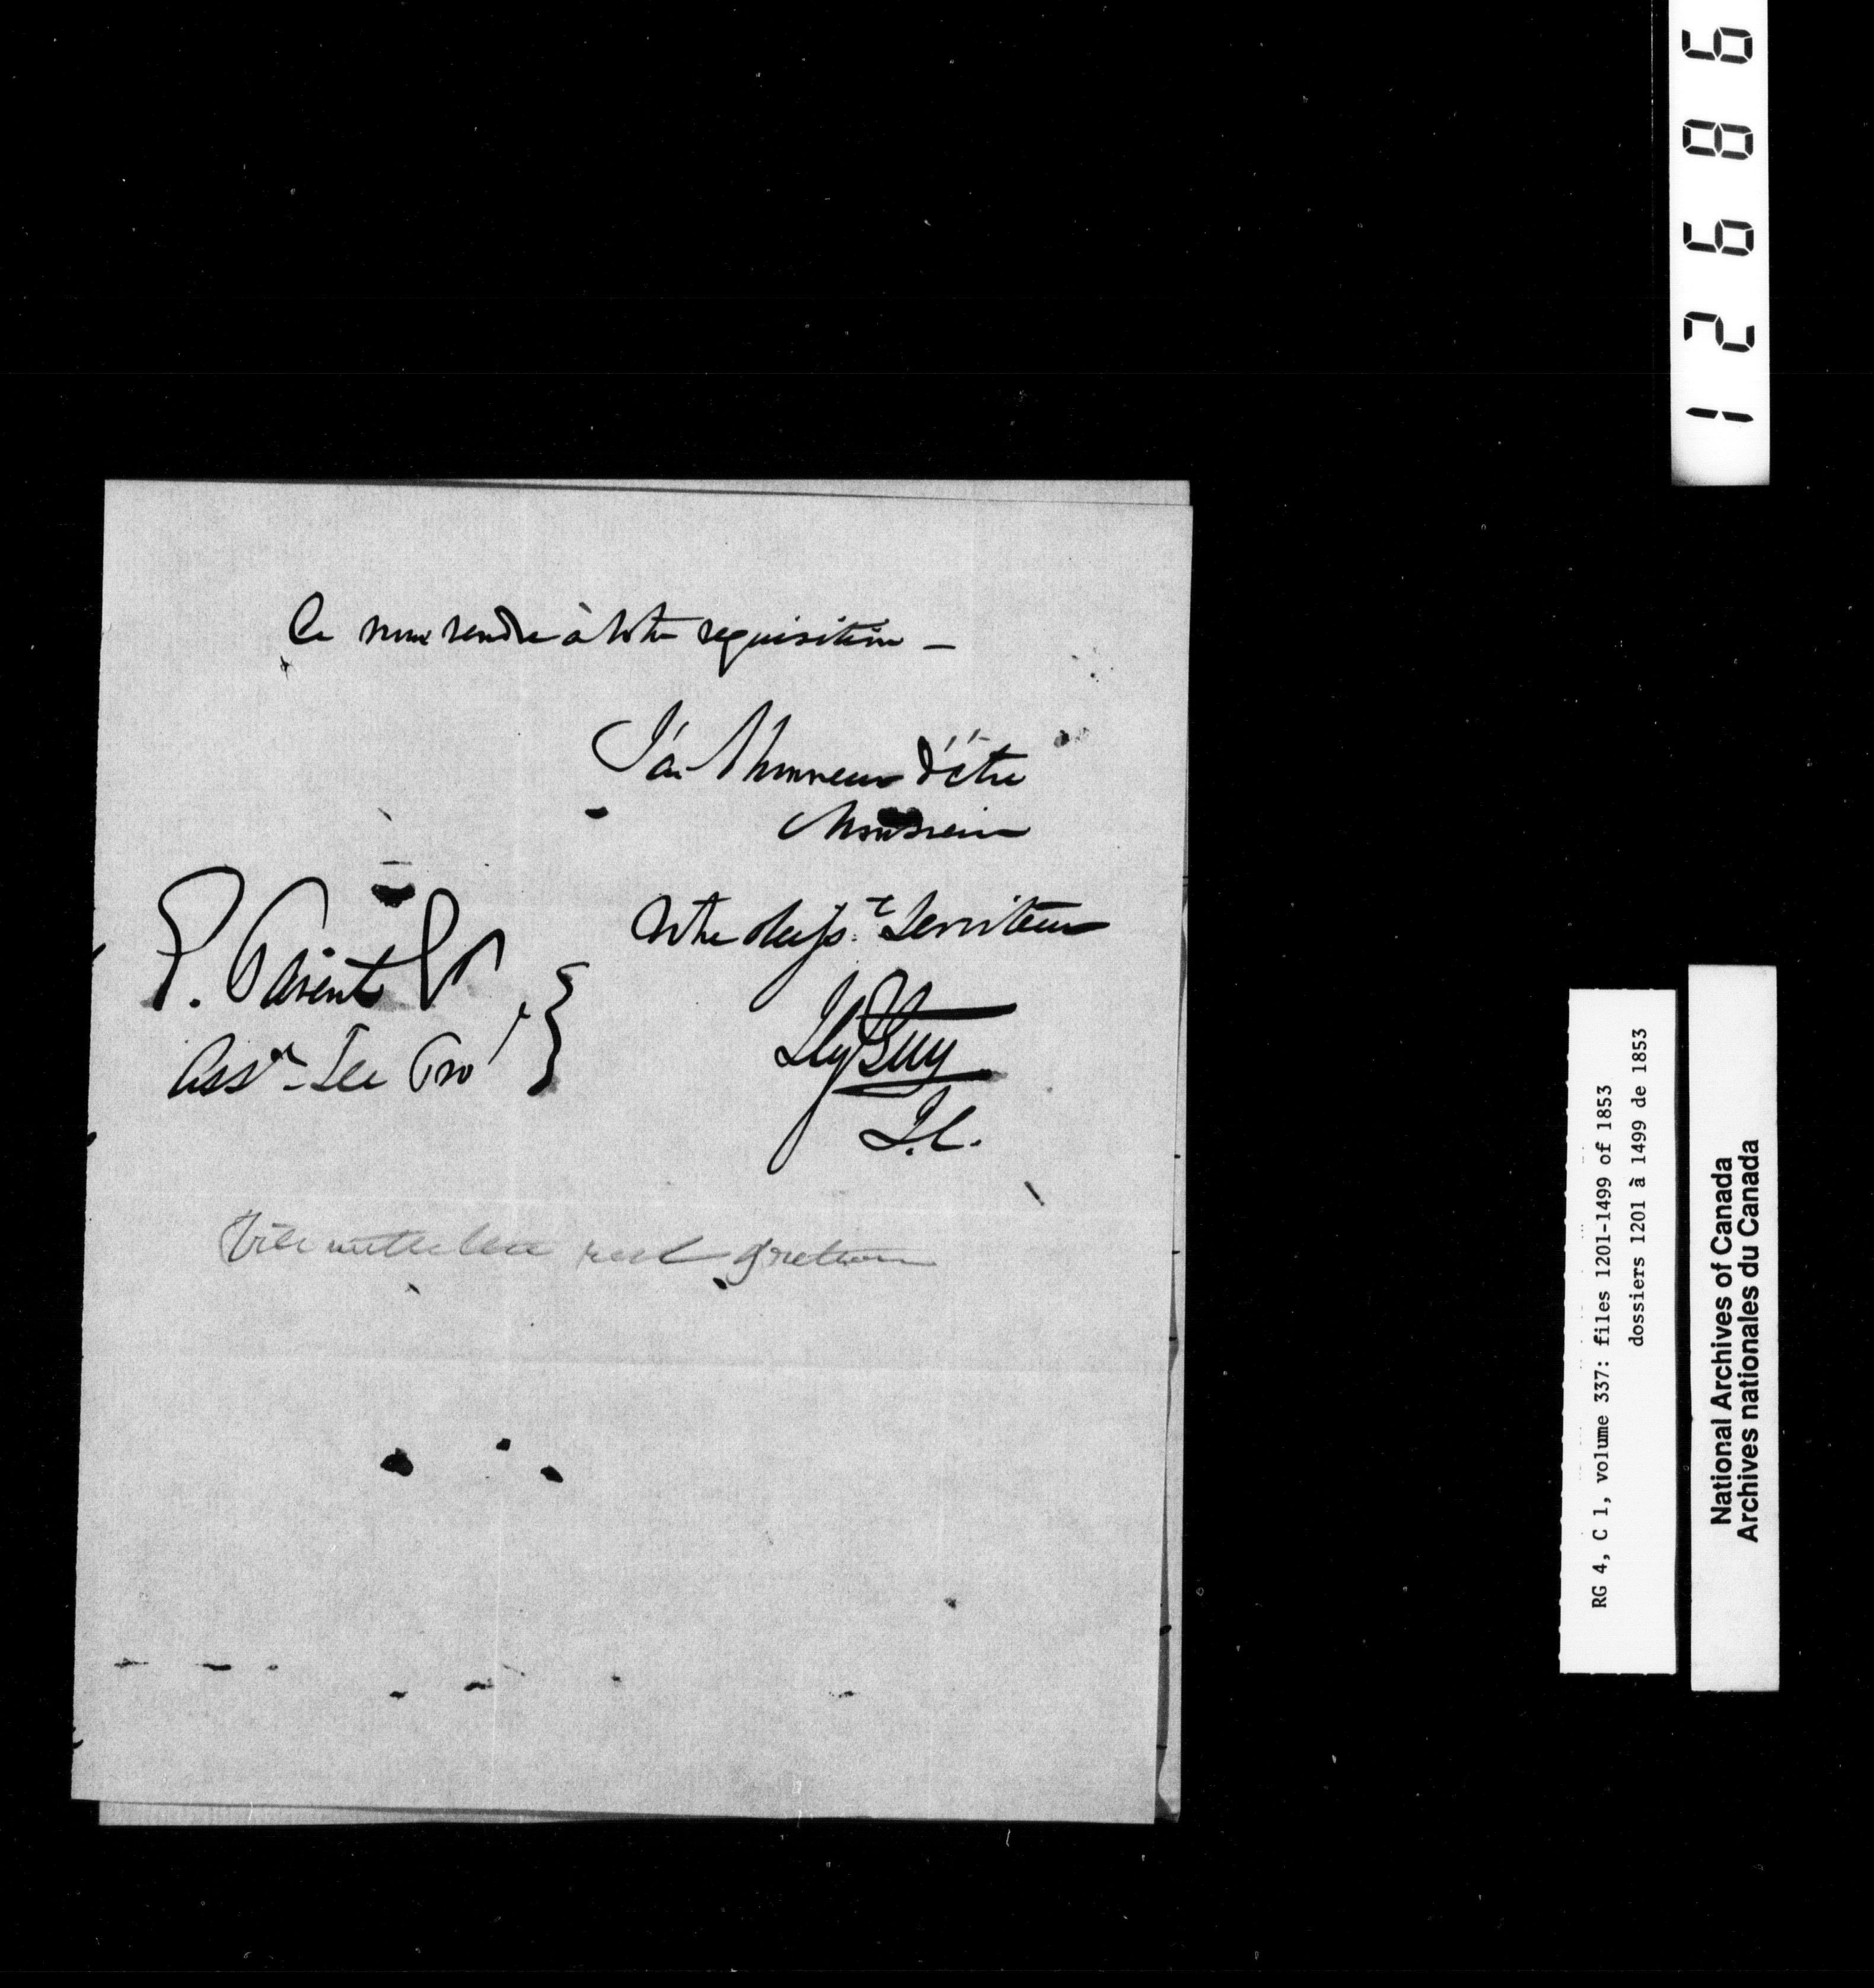 De nous rendre à votre requisition —
J'ai l'honneur d'être
Monsieur
Votre obeisst. Serviteur
Hy Guy
J.C.
P. Parent
Asst - Sec Pro
12686
RG 4, C 1, volume 337: files 1201-1499 of 1853
dossiers 1201 à 1499 de 1853
National Archives of Canada
Archives nationales du Canada